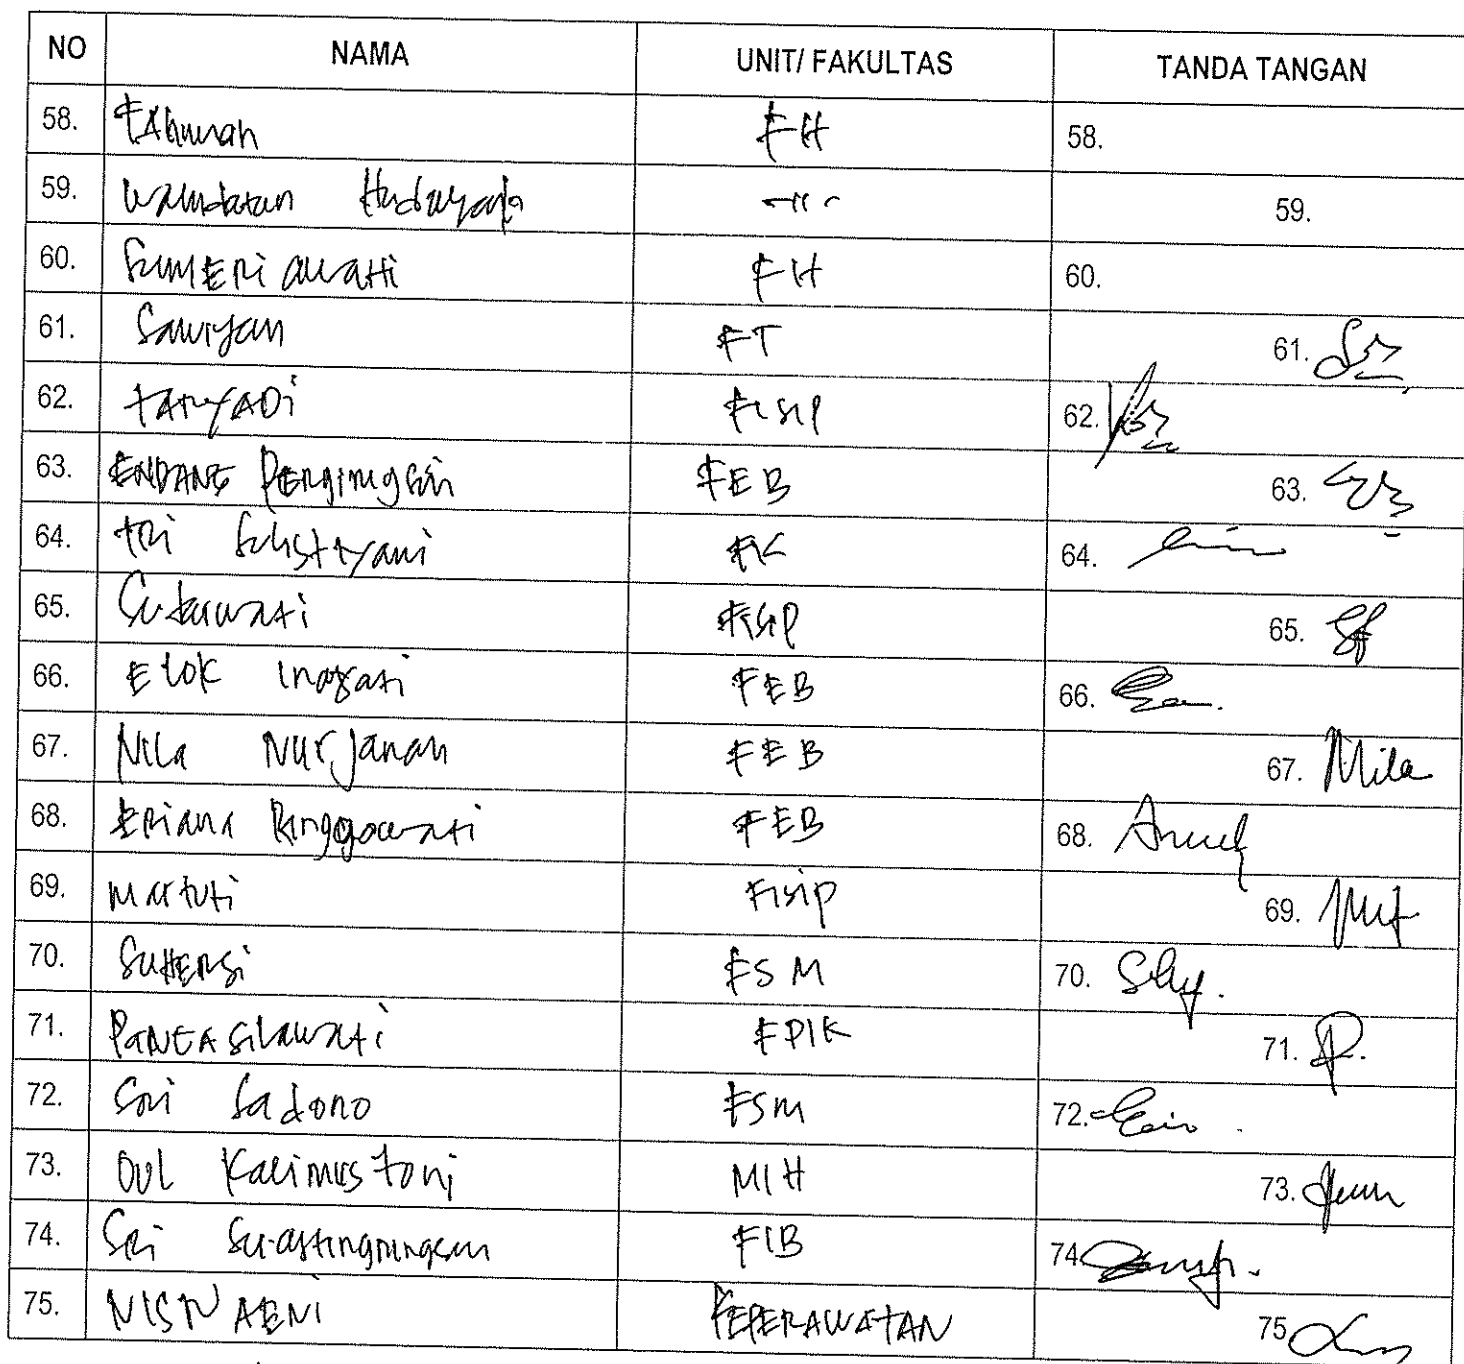 NO NAMA UNIT/ FAKULTAS TANDA TANGAN
58. FAhunah FH 58.
59. Wamdatun Hudayah -11- 59.
60. SumERi awati FH 60.
61. Sawiyan FT 61.
62. tARyADi Fisip 62.
63. ENDANG FEB 63.
64. tRi Sulistiyani FK 64.
65. Sukarwati Fisip 65.
66. Elok Inayati FEB 66.
67. Nila Nurjanah FEB 67. Mila
68. ERiana Ringgowati FEB 68.
69. Martuti Fisip 69.
70. SuHERSi FSM 70.
71. PANCA Silawati FPIK 71.
72. SRi Sadono FSM 72.
73. Dul Kalimustoni MIH 73.
74. SRi FIB 74.
75. NISN AENI KEPERAWATAN 75